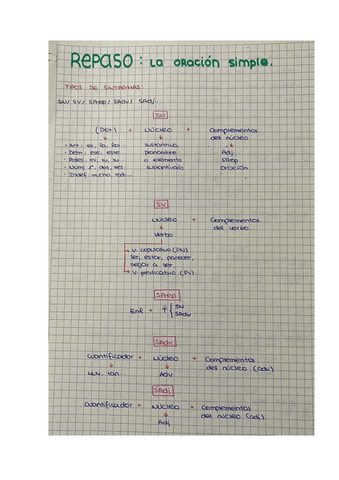 Repaso: La oración simple.
TIPOS DE SINTAGMAS
SN/ SV/ SPrep/ SAdv/ SAdj.
SN
(Det) + Núcleo + Complementos del núcleo
· Art: el, la, los... sustantivo, Adj.
· Dem: ese, este pronombre SPrep
· Poses: mi, tu, su o elemento Oración
· Num: 1º, dos, tres sustantivado
· Indef: mucho, todo...
SV
Núcleo + Complementos del verbo
Verbo
V. copulativo (PN)
ser, estar, parecer,
llegar a ser.
V. predicativo (PV)
SPrep
Enl + T { SN
SAdv
SAdv
Cuantificador + Núcleo + Complementos del núcleo (adv)
muy, tan Adv
SAdj
Cuantificador + Núcleo + Complementos del núcleo (adj)
Adj